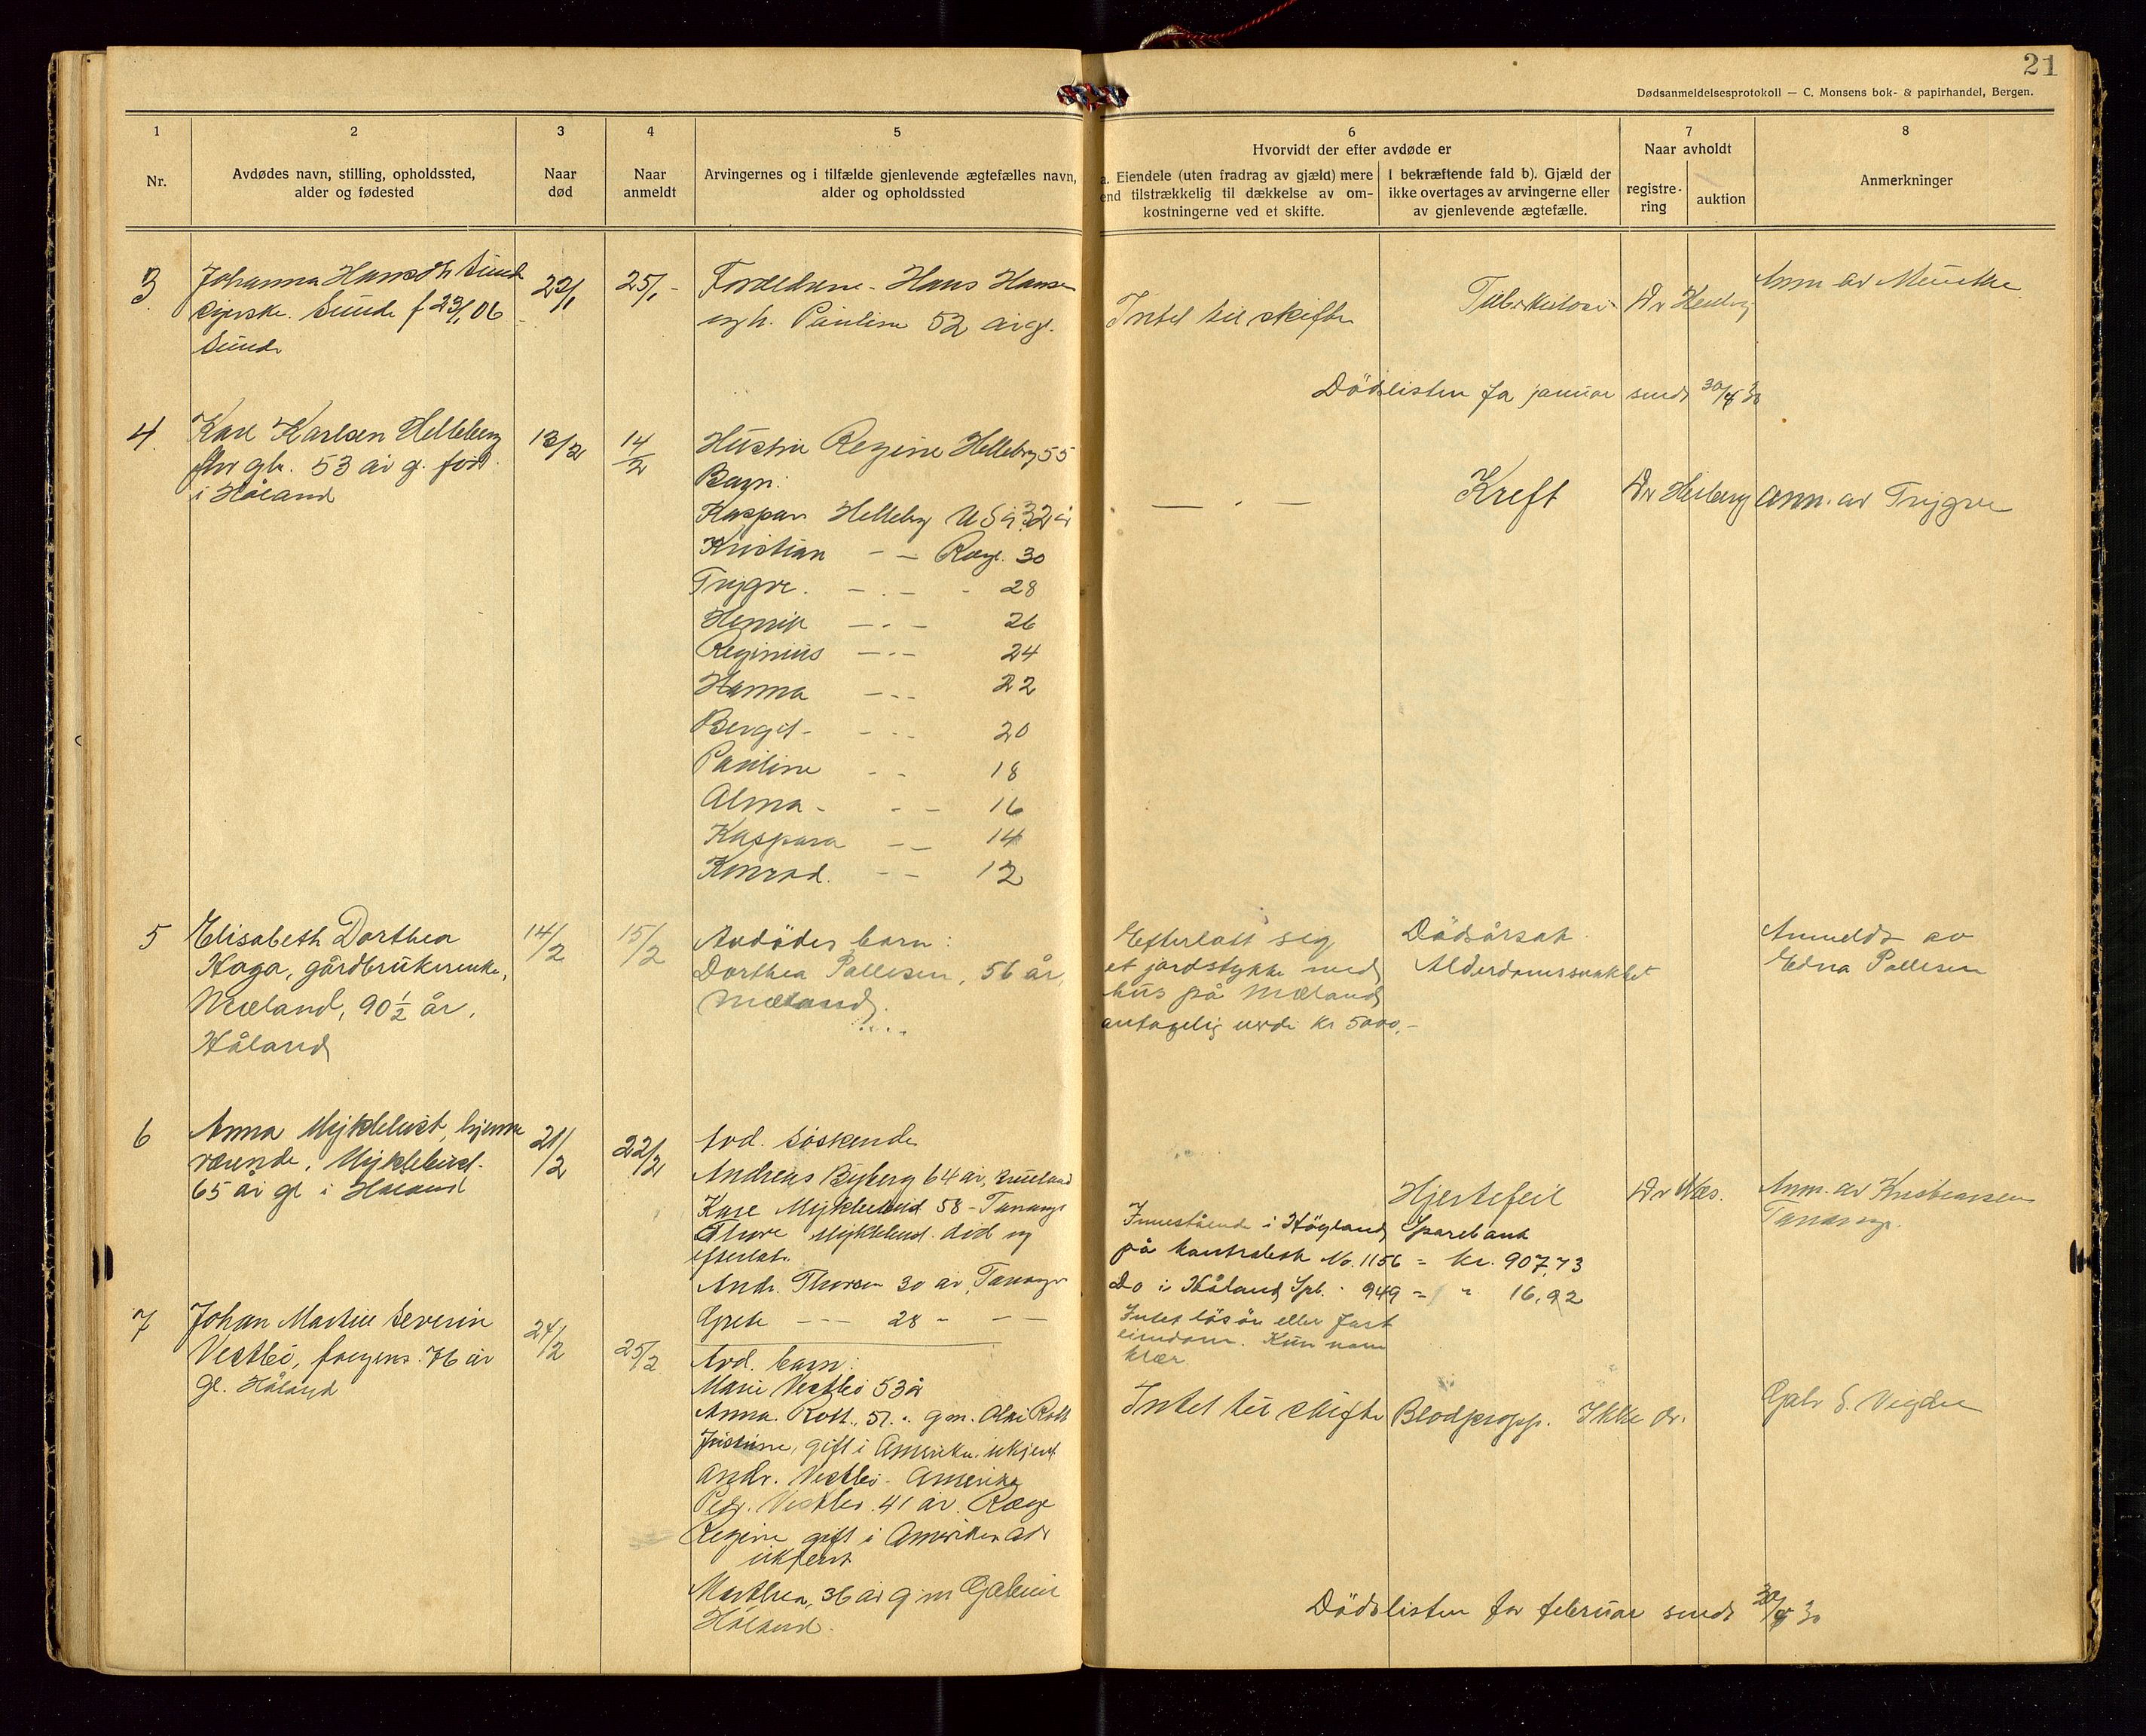 21
Dødsanmeldelsesprotokoll — C. Monsens bok- & papirhandel, Bergen.
1
Nr.
2
Avdødes navn, stilling, opholdssted,
alder og fødested
3
Naar
død
4
Naar
anmeldt
5
Arvingernes og i tilfælde gjenlevende ægtefælles navn,
alder og opholdssted
6
Hvorvidt der efter avdøde er
a. Eiendele (uten fradrag av gjæld) mere
end tilstrækkelig til dækkelse av om-
kostningerne ved et skifte.
I bekræftende fald b). Gjæld der
ikke overtages av arvingerne eller
av gjenlevende ægtefælle.
7
Naar avholdt
registre-
ring
auktion
8
Anmerkninger
3
Johanna Hansdtr Sunde
Sunde f 23/1 06
Sunde
22/1
25/1 -
Foreldrene - Hans Hansen
og h. Pauline 52 år gl.
Intet til skifte
Tuberkulose
Dr Heiberg
Anm av
Dödslisten for januar sendt 30/4 30
4.
Karl Karlsen Helleberg
53 år g. född
i Håland
13/2
14/2
Hustru Regine Helleberg 55
Barn:
Kaspar Helleberg USA 32 år
Kristian - — Ræge. 30
Trygve. — . — - 28
Henrik — . — 26
Reginius — . — 24
Hanna — - - 22
Bergit - - - - 20
Pauline - - 18
Alma - - — 16
Kaspara — — 14
Konrad. - — 12
— . —
Kreft
Dr Heiberg
Anm. av Trygve
5
Elisabeth Dorthea
Haga, gårdbrukerenke,
Meland, 90 1/2 år,
Håland
14/2
15/2
Avdödes barn:
Dorthea Pallesen, 56 år,
Meland.
Efterlatt seg
et jordstykke med
hus på Meland
antagelig verdi kr 5000,-
Dödsårsak
Alderdomssvakhet
Anmeldt av
Edna Pallesen
6
Anna Myklebust, hjemme
værende, Myklebust.
65 år gl i Håland
21/2
22/2
Avd. söskende
Andreas Byberg 64 år,
Karl Myklebust 58 - Tananger
Thore Myklebust. död og
efterlatt.
Andr. Thorsen 30 år, Tananger
Grete - - - 28 - — —
Innestående i Högland Sparebank
på kontrabok No. 1156 = kr. 907,73
Do i Håland Spb. - 949 = " 16,92
Intet lösöre eller fast
eiendom. Kun noen
klær.
Hjertefeil
Dr Næs.
Anm. av Kristensen
Tananger.
7
Johan Martin Severin
Vestbö, 76 år
gl. Håland
24/2
25/2
Avd. barn:
Marie Vestbö 53 år
Anna Rott., 51. - g m. Rott
Justine, gift i Amerika. ukjent
Andr. Vestbö - Amerika
Pedr. Vestbö. 41 år. Ræge
Regine gift i Amerika adr
ukjent
Marthea, 36 år g m Gabriel
Håland.
Intet til skifte
Blodpropp.
Ikke dr.
Gabr S.
Dödslisten for februar sendt 30/4 30